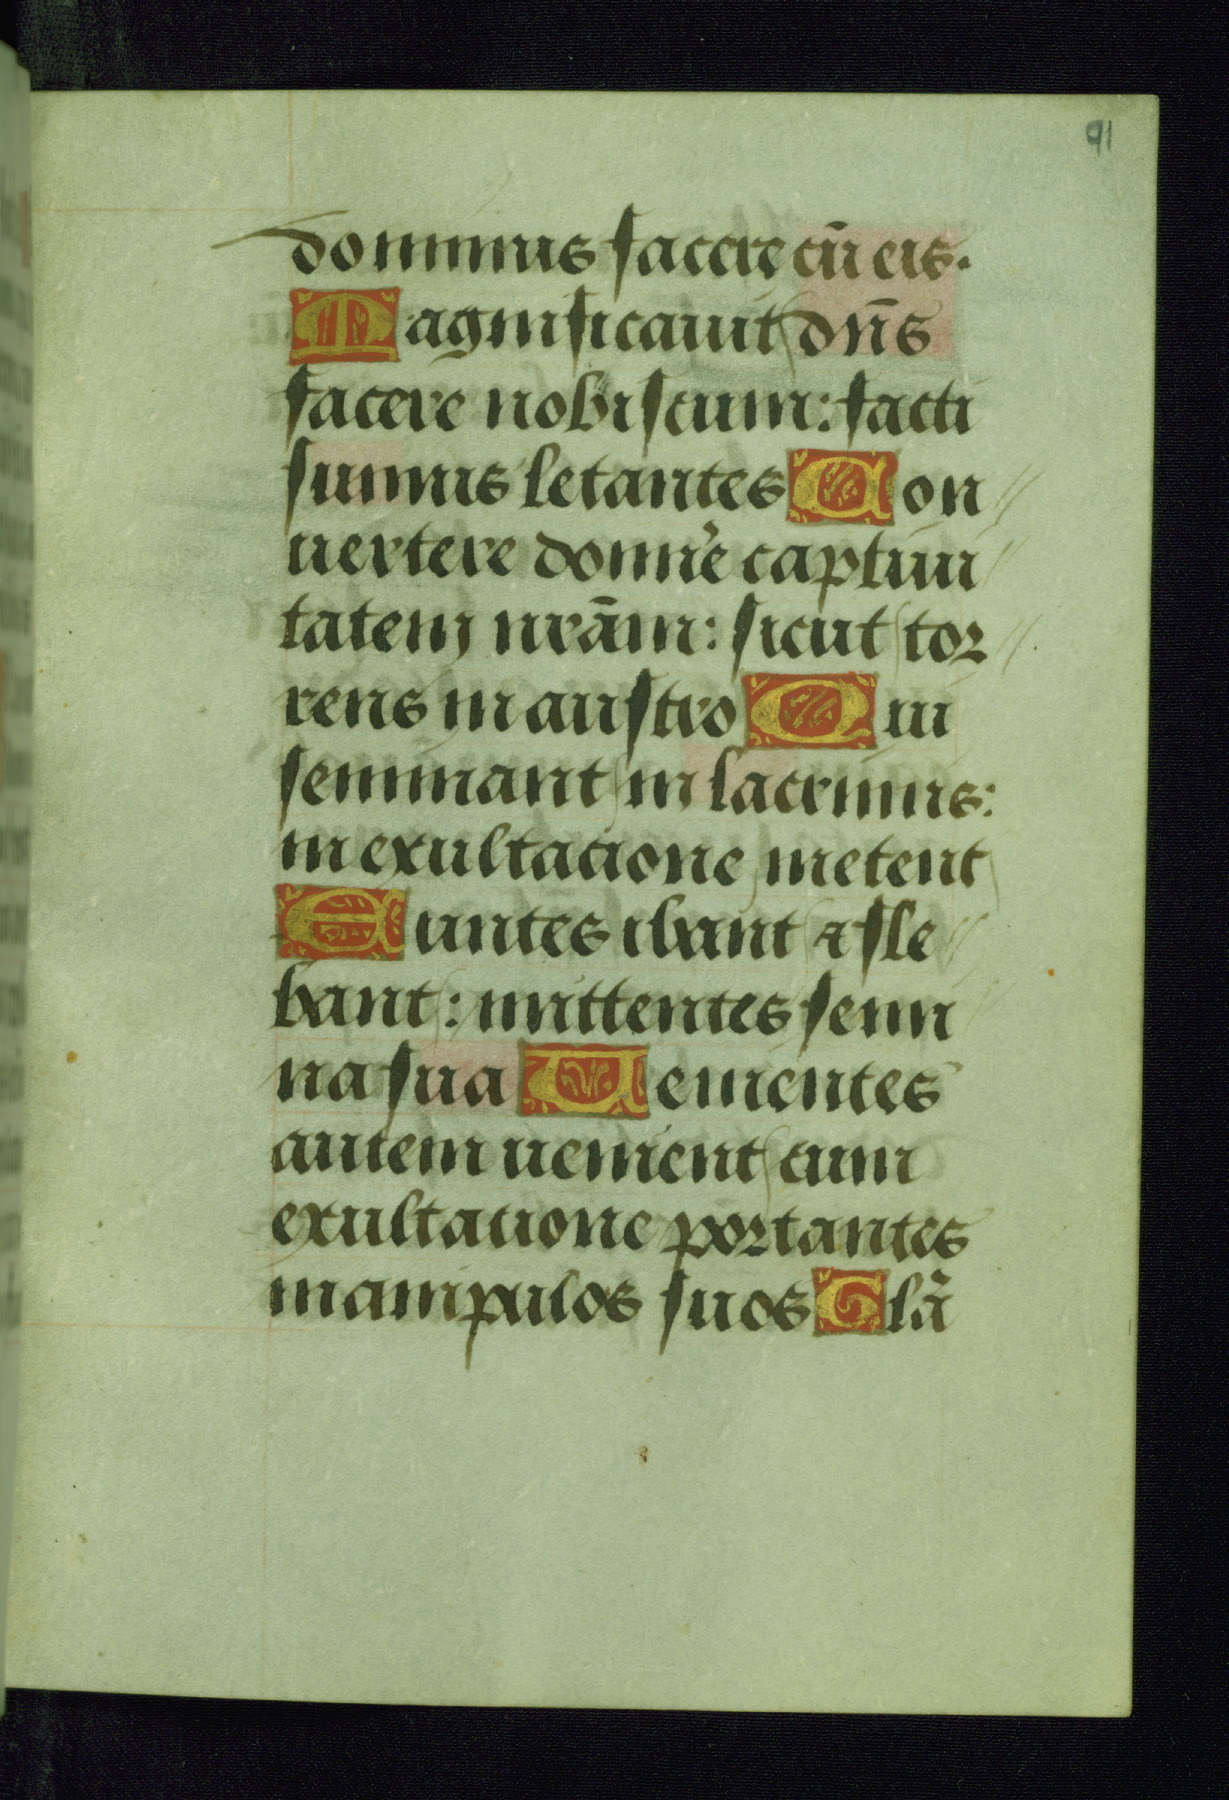 91
dominus facere cū eis.
Magnificauit dn̄s
facere nobiscum: facti
sumus letantes Con
uertere domīe captiui
tatem nrām: sicut tor
rens in austro Qui
seminant in lacrimis:
in exultatione metent
Euntes ibant ⁊ fle
bant: mittentes semi
na sua Uenientes
autem uenient cum
exultatione portantes
manipulos suos Glā